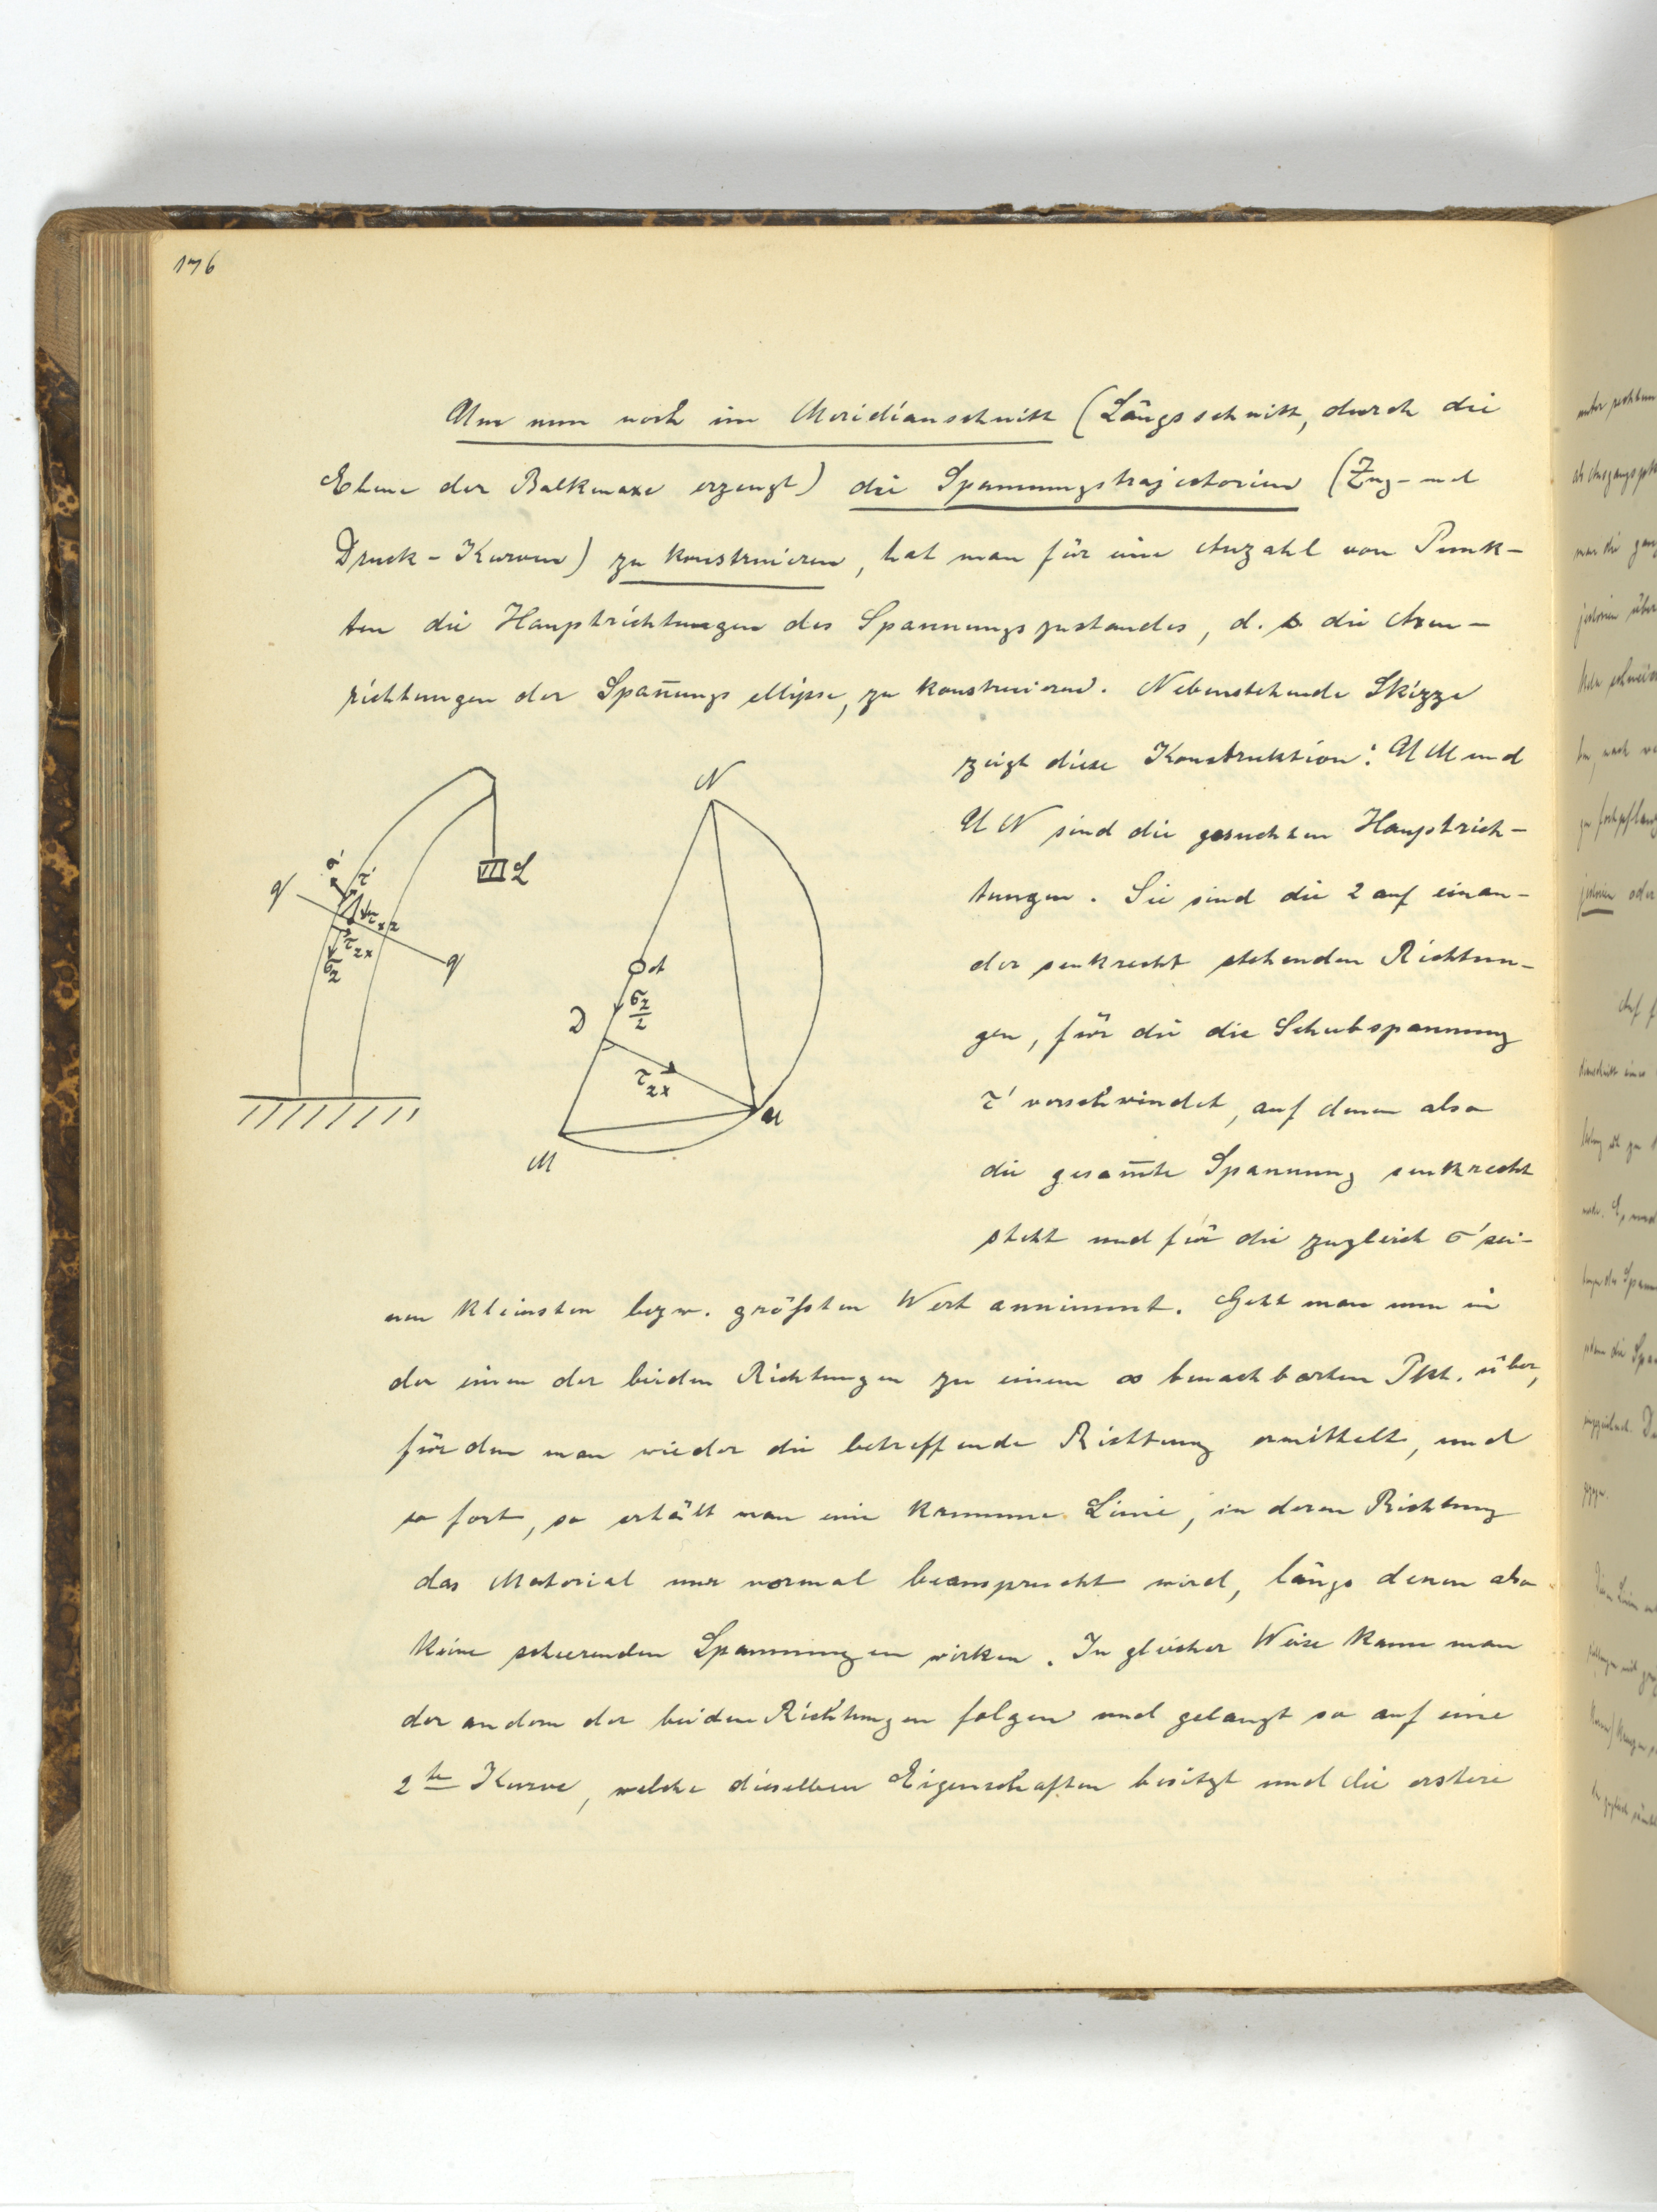 176
Um nun noch im Meridianschnitt (Längsschnitt, durch die
Ebene der Balkenaxe erzeugt) die Spannungstrajectorien (Zug- und
Druck-Kurven) zu konstruieren, hat man für eine Anzahl von Punk-
ten die Hauptrichtungen des Spannungszustandes, d. h. die Axen-
richtungen der Spañungsellipse, zu konstruieren. Nebenstehende Skizze
zeigt diese Konstruktion: UM und
UN sind die gesuchten Hauptrich-
tungen. Sie sind die 2 auf einan-
der senkrecht stehenden Richtun-
gen, für die die Schubspannung
τ' verschwindet, auf denen also
die gesam̅te Spannung senkrecht
steht und für die zugleich σ' sei-
nen kleinsten bezw. größten Wert annimmt. Geht man nun in
der einen der beiden Richtungen zu einem ∞ benachbarten Pkt. über,
für den man wieder die betreffende Richtung ermittelt, und
so fort, so erhält man eine krumme Linie, in deren Richtung
das Material nur normal beansprucht wird, längs denen also
keine scheerenden Spannungen wirken. In gleicher Weise kann man
der andern der beiden Richtungen folgen und gelangt so auf eine
2te Kurve, welche dieselben Eigenschaften besitzt und die erstere
q
σ'
τ'
τxz
τzx
σz
q
L
N
A
σz/2
D
τzx
U
M